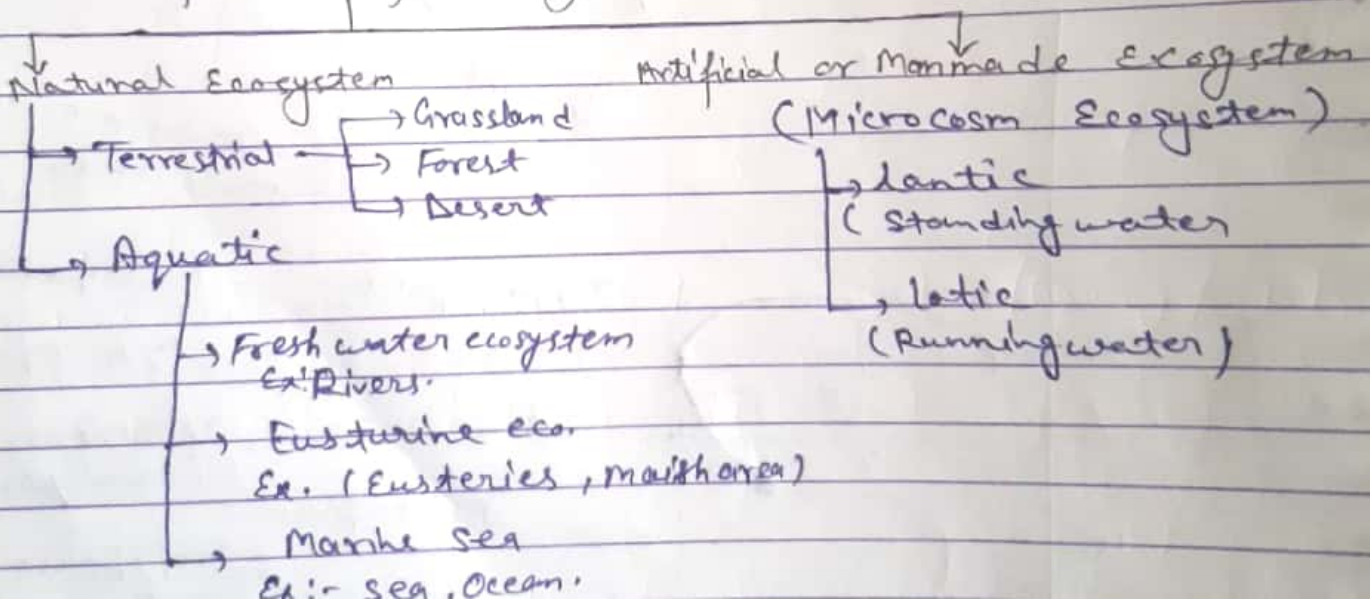 Natural Ecosystem
→ Terrestrial
→ Grassland
→ Forest
→ Desert
→ Aquatic
→ Fresh water ecosystem
Ex: Rivers.
→ Eusturine eco.
Ex. (Eusteries, area)
→ Marine sea
Ex:- sea, Ocean.
Artificial or Manmade Ecosystem
(Microcosm Ecosystem)
→ lantic
(Standing water
→ lotic
(Running water)